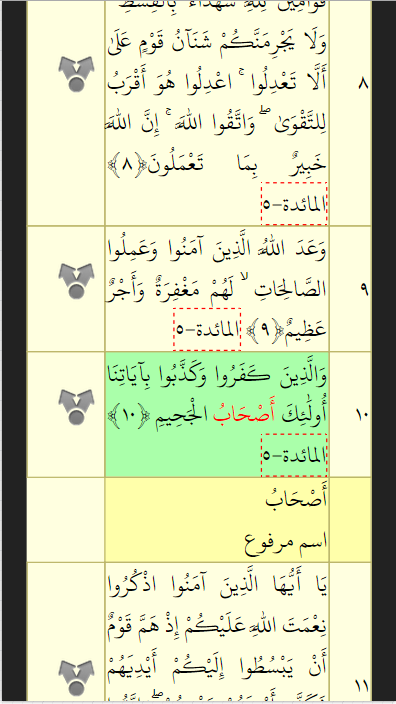 قَوَّامِينَ لِلَّهِ شُهَدَاءَ بِالْقِسْطِ
وَلَا يَجْرِمَنَّكُمْ شَنَآنُ قَوْمٍ عَلَىٰ
أَلَّا تَعْدِلُوا ۚ اعْدِلُوا هُوَ أَقْرَبُ
٨
لِلتَّقْوَىٰ ۖ وَاتَّقُوا اللَّهَ ۚ إِنَّ اللَّهَ
خَبِيرٌ بِمَا تَعْمَلُونَ﴿٨﴾
المائدة-٥
وَعَدَ اللَّهُ الَّذِينَ آمَنُوا وَعَمِلُوا
٩
الصَّالِحَاتِ ۙ لَهُمْ مَغْفِرَةٌ وَأَجْرٌ
عَظِيمٌ﴿٩﴾ المائدة-٥
وَالَّذِينَ كَفَرُوا وَكَذَّبُوا بِآيَاتِنَا
١٠
أُولَٰئِكَ أَصْحَابُ الْجَحِيمِ﴿١٠﴾
المائدة-٥
أَصْحَابُ
اسم مرفوع
يَا أَيُّهَا الَّذِينَ آمَنُوا اذْكُرُوا
نِعْمَتَ اللَّهِ عَلَيْكُمْ إِذْ هَمَّ قَوْمٌ
أَنْ يَبْسُطُوا إِلَيْكُمْ أَيْدِيَهُمْ
١١